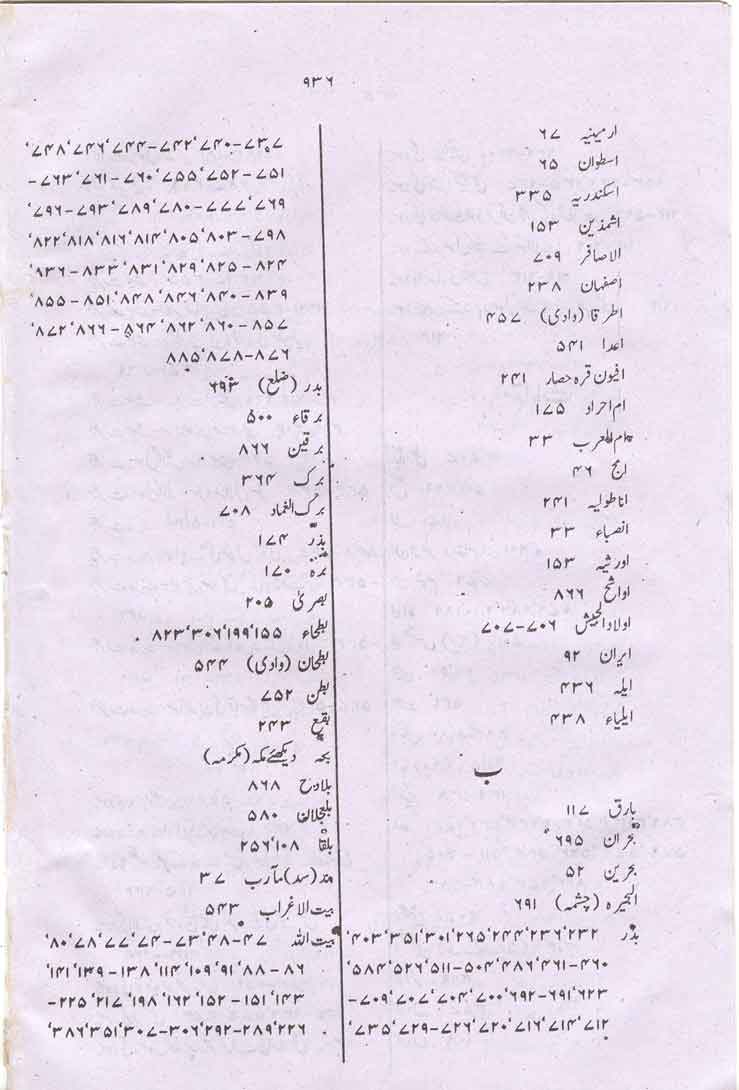 ۹۳۶
ارمینیہ ۶۷
اسطوان ۶۵
اسکندریہ ۳۳۵
اشمذین ۱۵۳
الاصافر ۷۰۹
اصفہان ۲۳۸
اطرقا (وادی) ۴۵۷
اعدا ۵۴۱
افیون قرہ حصار ۲۴۱
ام احراد ۱۷۵
ام العرب ۳۳
امج ۴۶
اناطولیہ ۲۴۱
انصیاء ۳۳
اورشیہ ۱۵۳
اواشح ۸۶۶
اولادالجیش ۷۰۶-۷۰۷
ایران ۹۲
ایلہ ۴۳۶
ایلیاء ۴۳۸
ب
بارق ۱۱۷
بحران ۶۹۵
بحرین ۵۲
البحیرہ (چشمہ) ۶۹۱
بدر ۲۳۲'۲۳۶'۲۴۴'۲۶۵'۳۰۱'۳۵۱'۴۰۳'
۴۶۰-۴۶۱'۴۸۶'۵۰۴-۵۱۱'۵۲۶'۵۸۴'
۶۲۳'۶۹۱-۶۹۲'۷۰۰'۷۰۴'۷۰۷'۷۰۹-
۷۱۲'۷۱۴'۷۱۶'۷۲۰'۷۲۶-۷۲۹'۷۳۵'
۷۳۷-۷۴۰'۷۴۲-۷۴۴'۷۴۶'۷۴۸'
۷۵۱-۷۵۲'۷۵۵'۷۶۰-۷۶۱'۷۶۳-
۷۶۹'۷۷۷-۷۸۰'۷۸۹'۷۹۳-۷۹۶'
۷۹۸-۸۰۳'۸۰۵'۸۱۴'۸۱۶'۸۱۸'۸۲۲'
۸۲۴-۸۲۵'۸۲۹'۸۳۱'۸۳۳-۸۳۶'
۸۳۹-۸۴۰'۸۴۶'۸۴۸'۸۵۱-۸۵۵'
۸۵۷-۸۶۰'۸۶۲'۵۶۴-۸۶۶'۸۷۲'
۸۷۶-۸۷۸'۸۸۵
بدر (ضلع) ۶۹۳
برقاء ۵۰۰
برقین ۸۶۶
برک ۳۶۴
برک الغماد ۷۰۸
بذر ۱۷۴
برہ ۱۷۰
بصریٰ ۲۰۵
بطحاء ۱۵۵'۱۹۹'۳۰۶'۸۲۳
بطحان (وادی) ۵۴۴
بطن ۷۵۲
بقع ۲۴۳
بکہ دیکھئے مکہ (مکرمہ)
بلادح ۸۶۸
۵۸۰
بلقا ۱۰۸'۲۵۶
بند (سد) مآرب ۳۷
بیت الاغراب ۵۴۳
بیت اللہ ۴۷-۴۸'۷۳-۷۴'۷۷'۷۸'۸۰'
۸۶-۸۸'۹۱'۱۰۹'۱۱۴'۱۳۸-۱۳۹'۱۴۱'
۱۴۳'۱۵۱-۱۵۲'۱۶۲'۱۹۸'۲۱۷'۲۲۵-
۲۲۶'۲۸۹-۲۹۲'۳۰۶-۳۰۷'۳۵۱'۳۸۶'